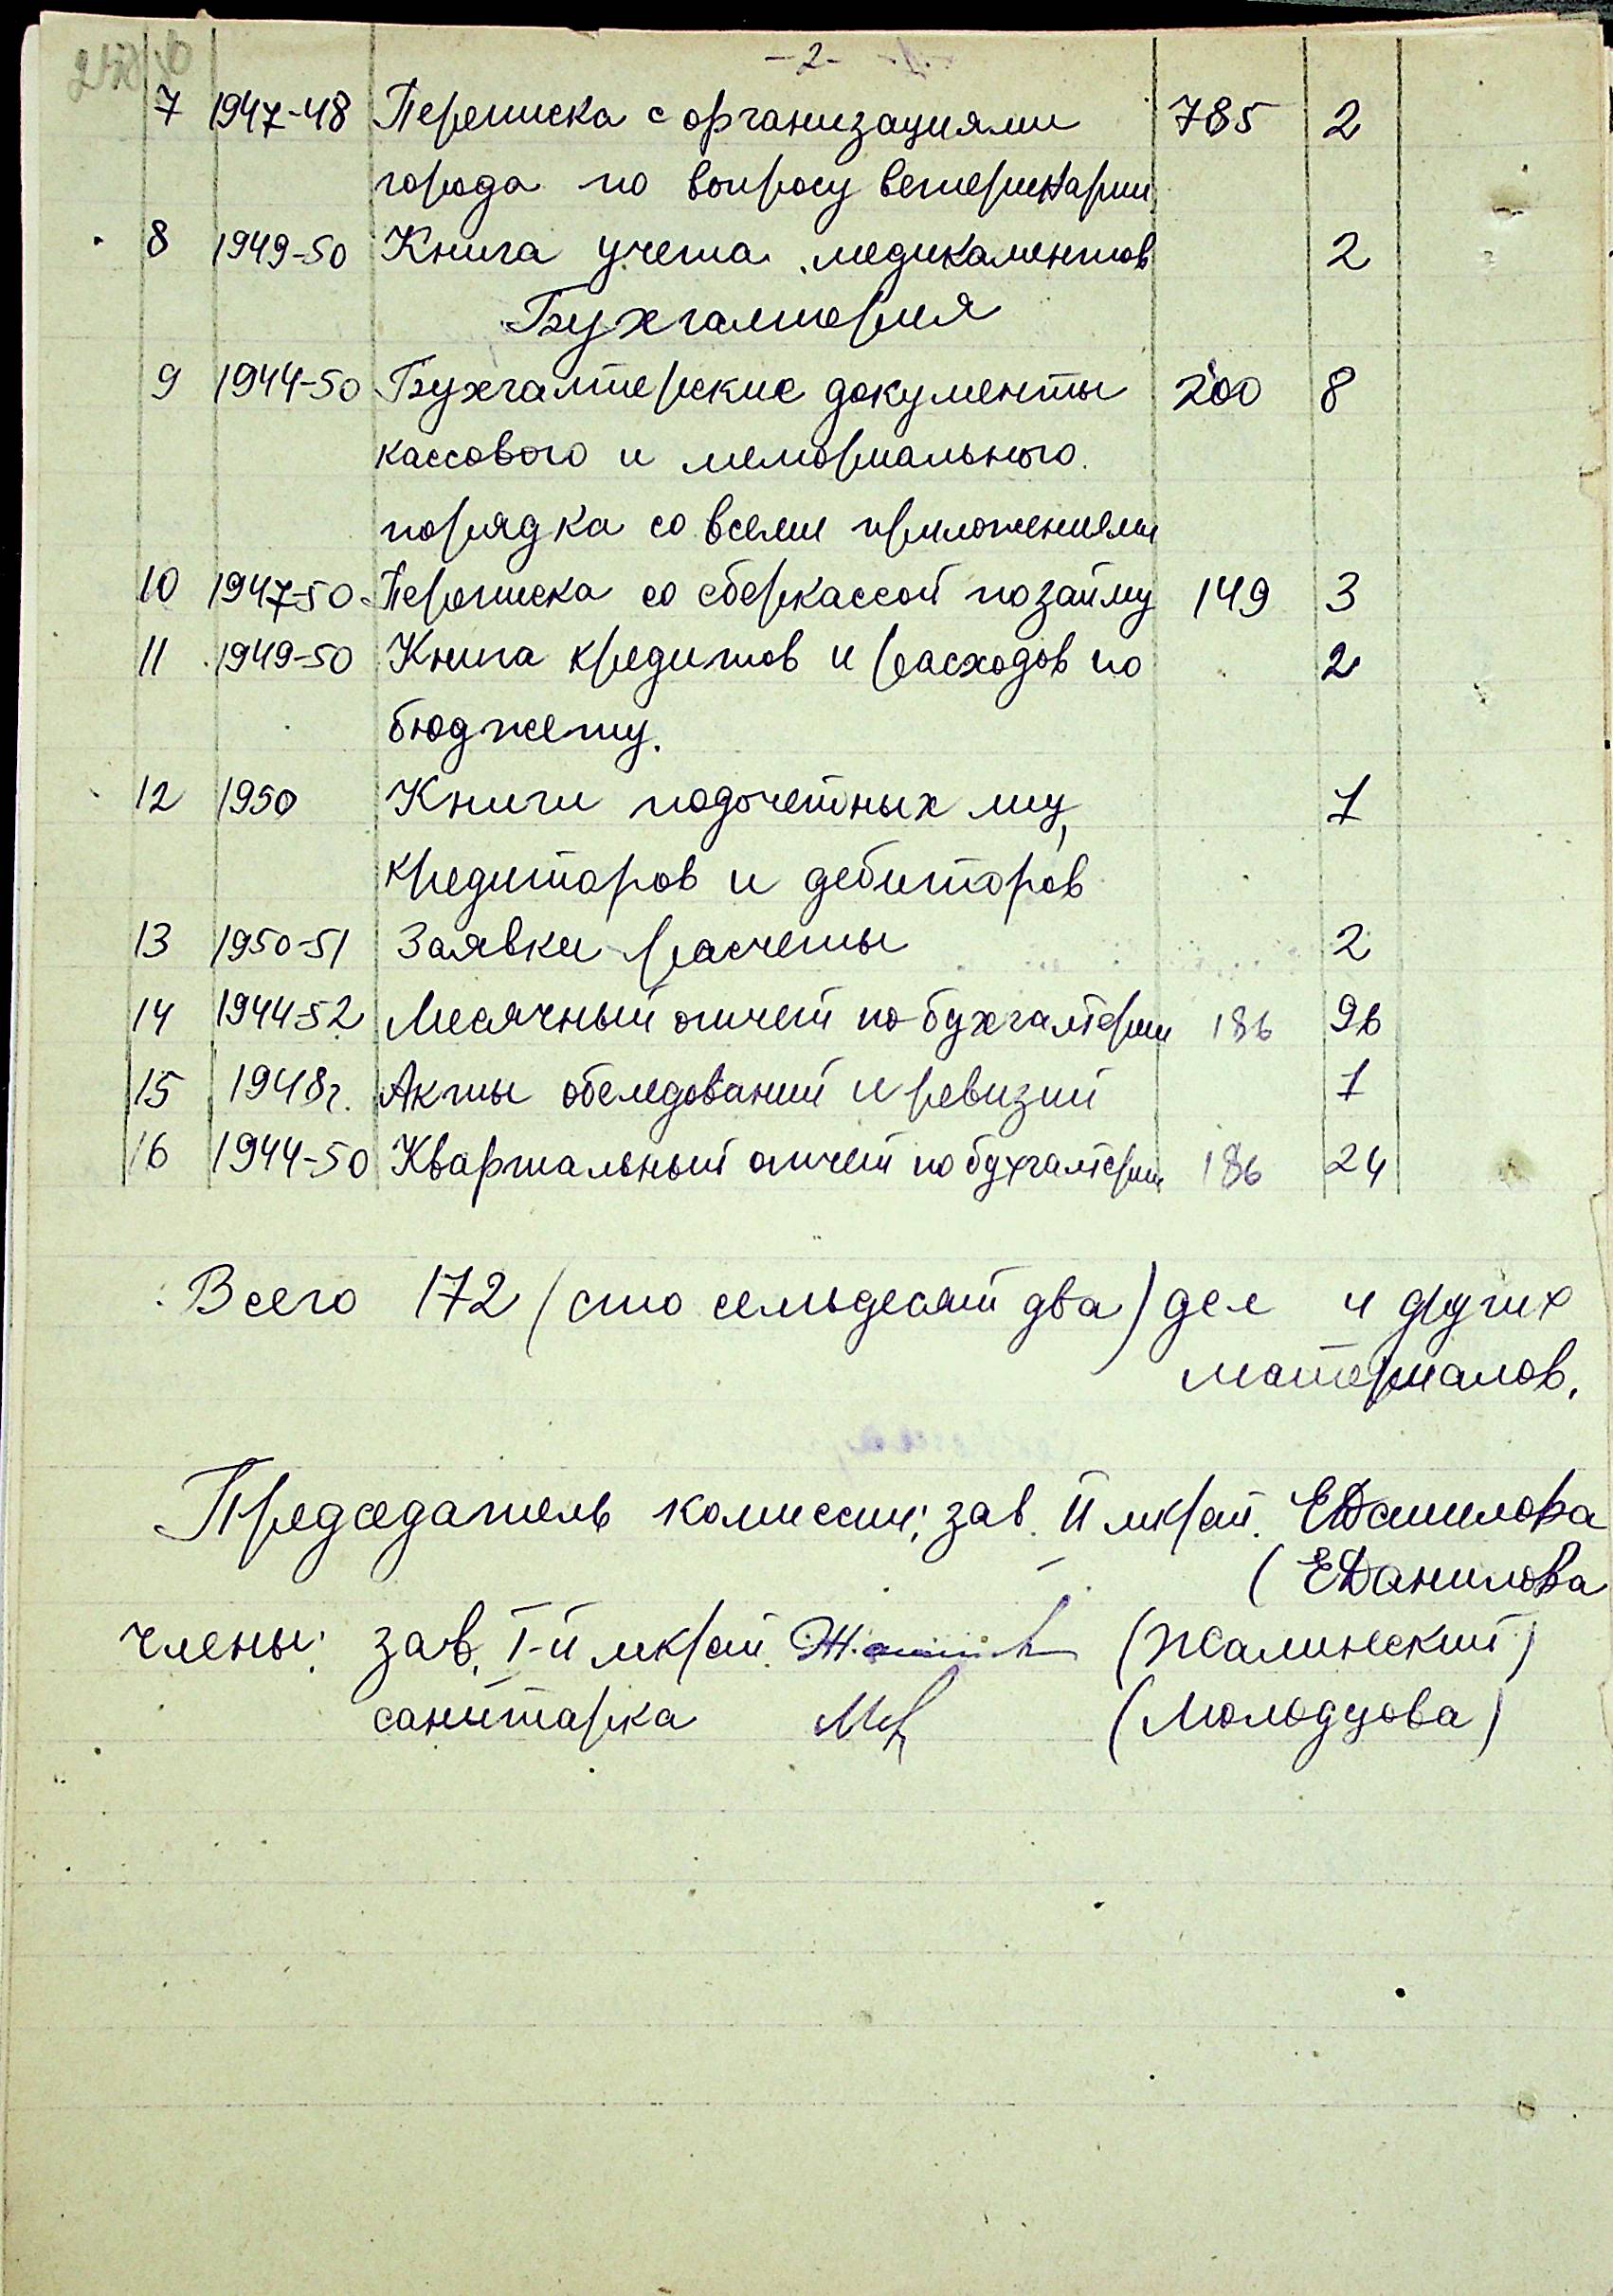 -2-
7 1947-48 Переписка с организациями 785 2
города по вопросу ветеринарии
8 1949-50 Книга учета медикаментов 2
Бухгалтерия
9 1944-50 Бухгалтерские документы 200 8
кассового и мемориального
порядка со всеми приложениями
10 1947-50 Переписка со сберкассой по займу 149 3
11 1949-50 Книга кредитов и расходов по 2
бюджету.
12 1950 Книги подочетных лиц, 1
кредиторов и дебиторов
13 1950-51 Заявки расчеты 2
14 1944-52 Месячный отчет по бухгалтерии 186 96
15 1948г. Акты обследований и ревизий 1
16 1944-50 Квартальный отчет по бухгалтерии 186 24
Всего 172 (сто семьдесят два) дел и других
материалов.
Председатель комиссии: зав. II мк/ст. ЕДанилова
(ЕДанилова
члены: зав. I-й мк/ст. (Жалинский)
санитарка (Молодцова)